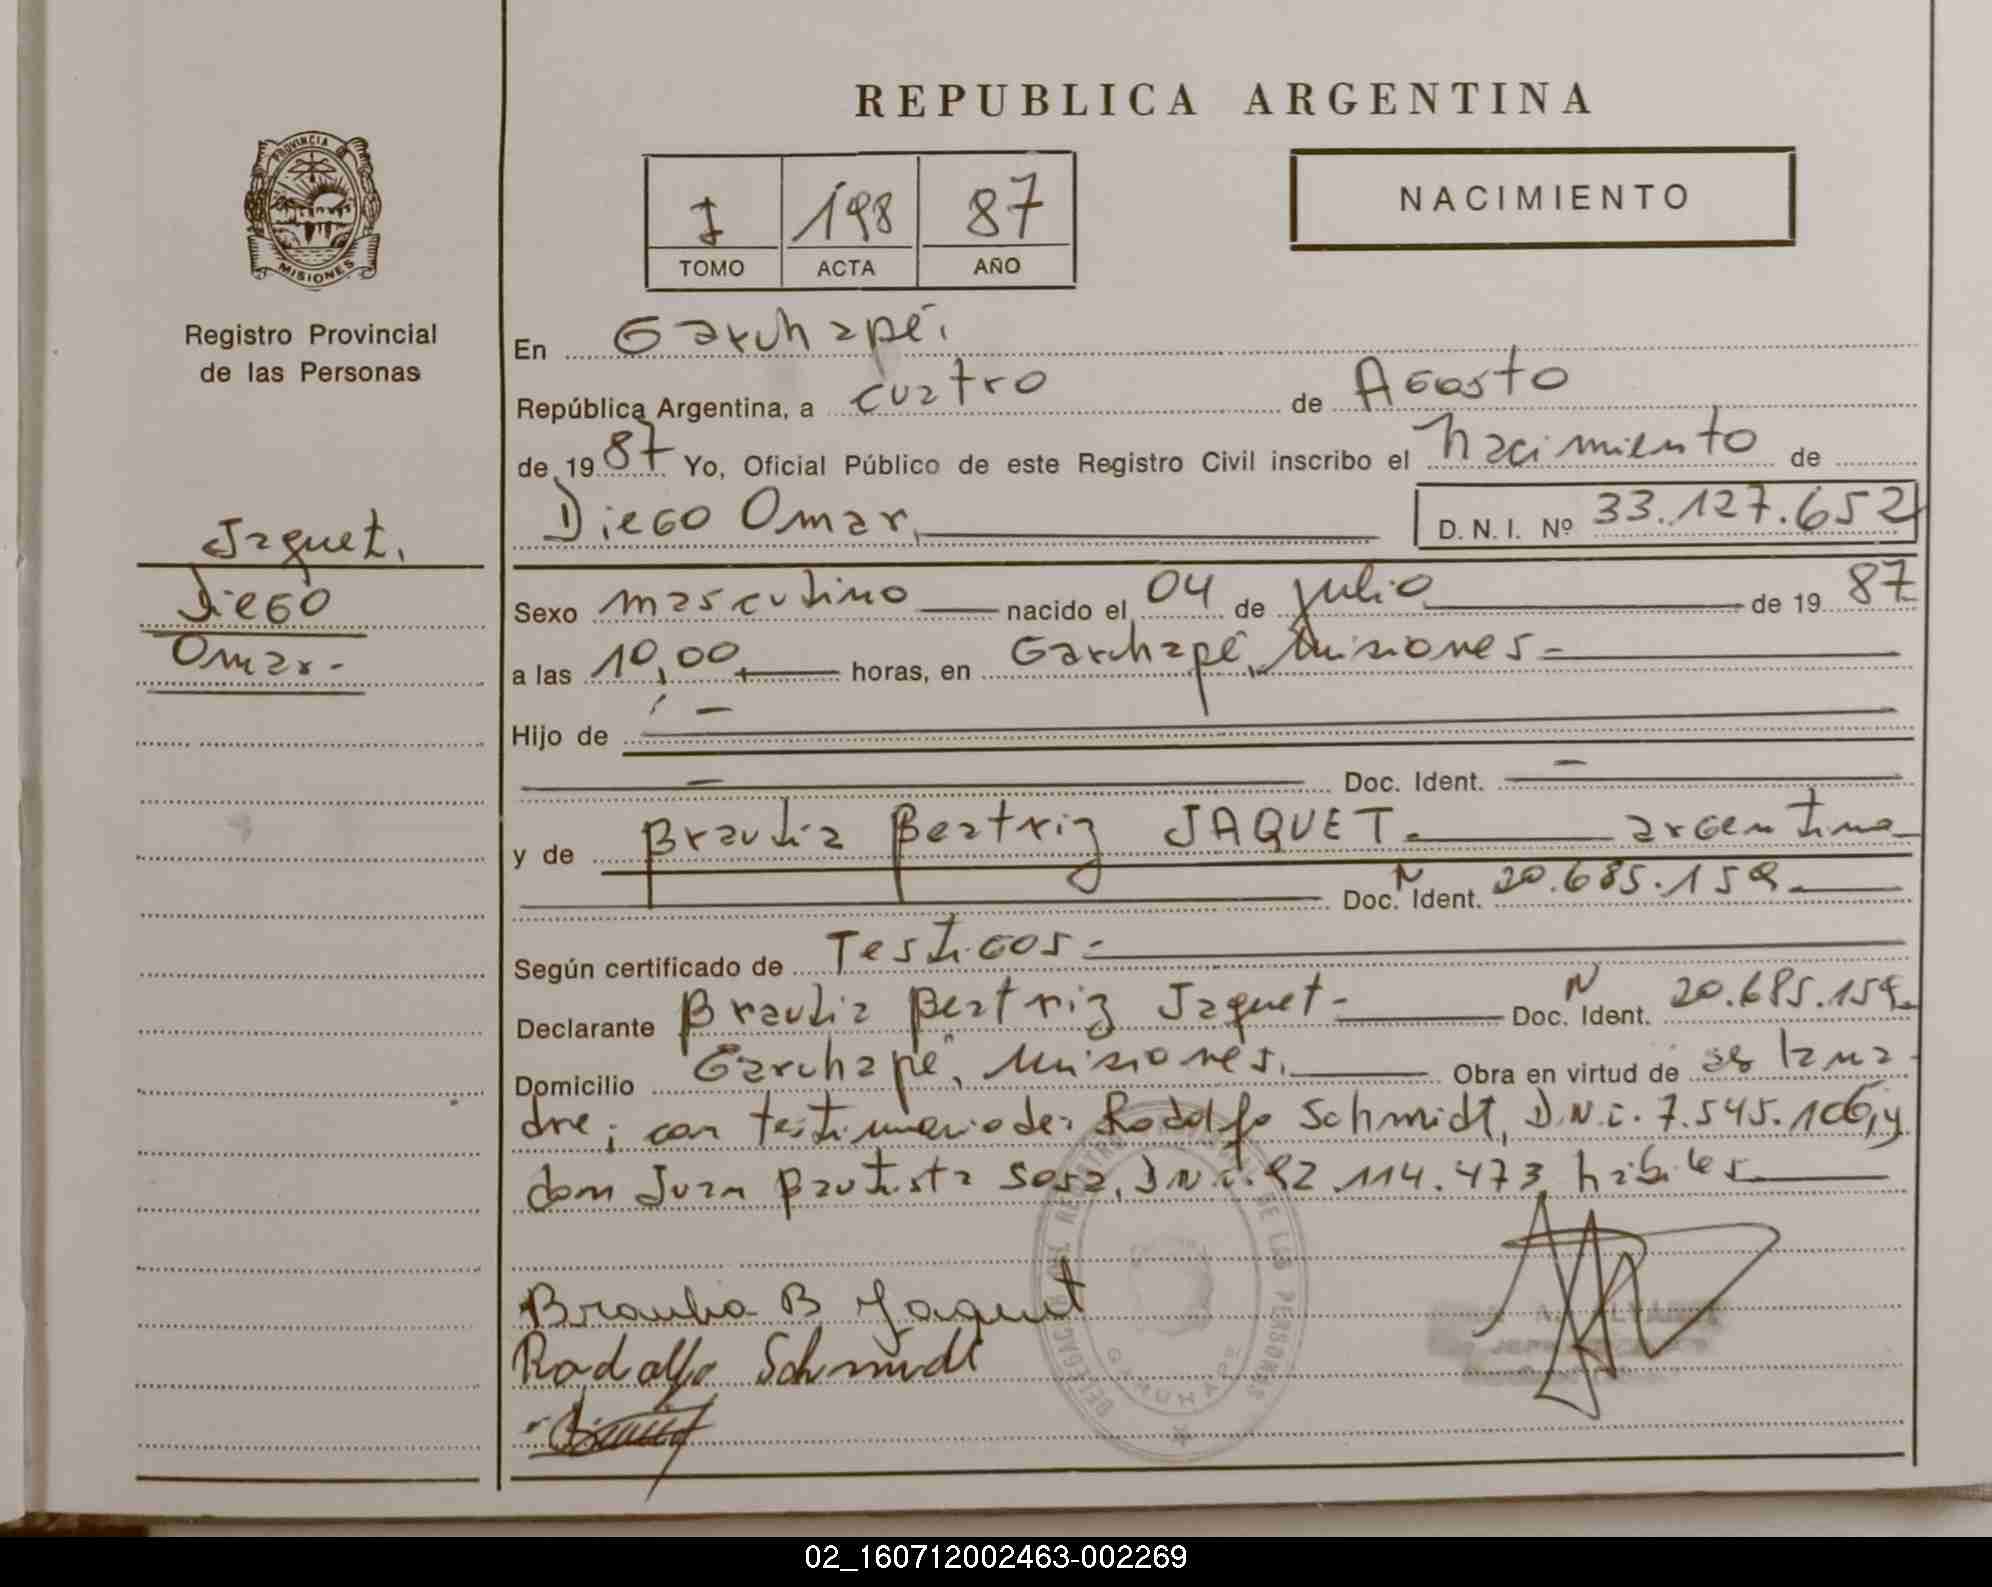 REPUBLICA ARGENTINA
PROVINCIA DE
MISIONES
I 198 87
TOMO ACTA AÑO
NACIMIENTO
Registro Provincial
de las Personas
Jaquet,
Diego
Omar.-
En Garuhapé,
República Argentina, a cuatro de Agosto
de 1987 Yo, Oficial Público de este Registro Civil inscribo el Nacimiento de
Diego Omar, D. N. I. Nº 33.127.652
Sexo masculino nacido el 04 de julio de 19 87
a las 10,00 horas, en Garuhapé, Misiones.-
Hijo de
Doc. Ident.
y de Braulia Beatriz JAQUET.- argentina
Doc. N Ident. 20.685.159.
Según certificado de Testigos.-
Declarante Braulia Beatriz Jaquet.- Doc. N Ident. 20.685.159.
Domicilio Garuhapé, Misiones. Obra en virtud de es la ma-
dre; con testimonio de: Rodolfo Schmidt, D.N.i. 7.545.106, y
don Juan Bautista Sosa, D.N.i. 92.114.473 habiles
Braulia B Jaquet
Rodolfo Schmidt
DELEGACION DEL REGISTRO PROVINCIAL DE LAS PERSONAS
GARUHAPE
02_160712002463-002269